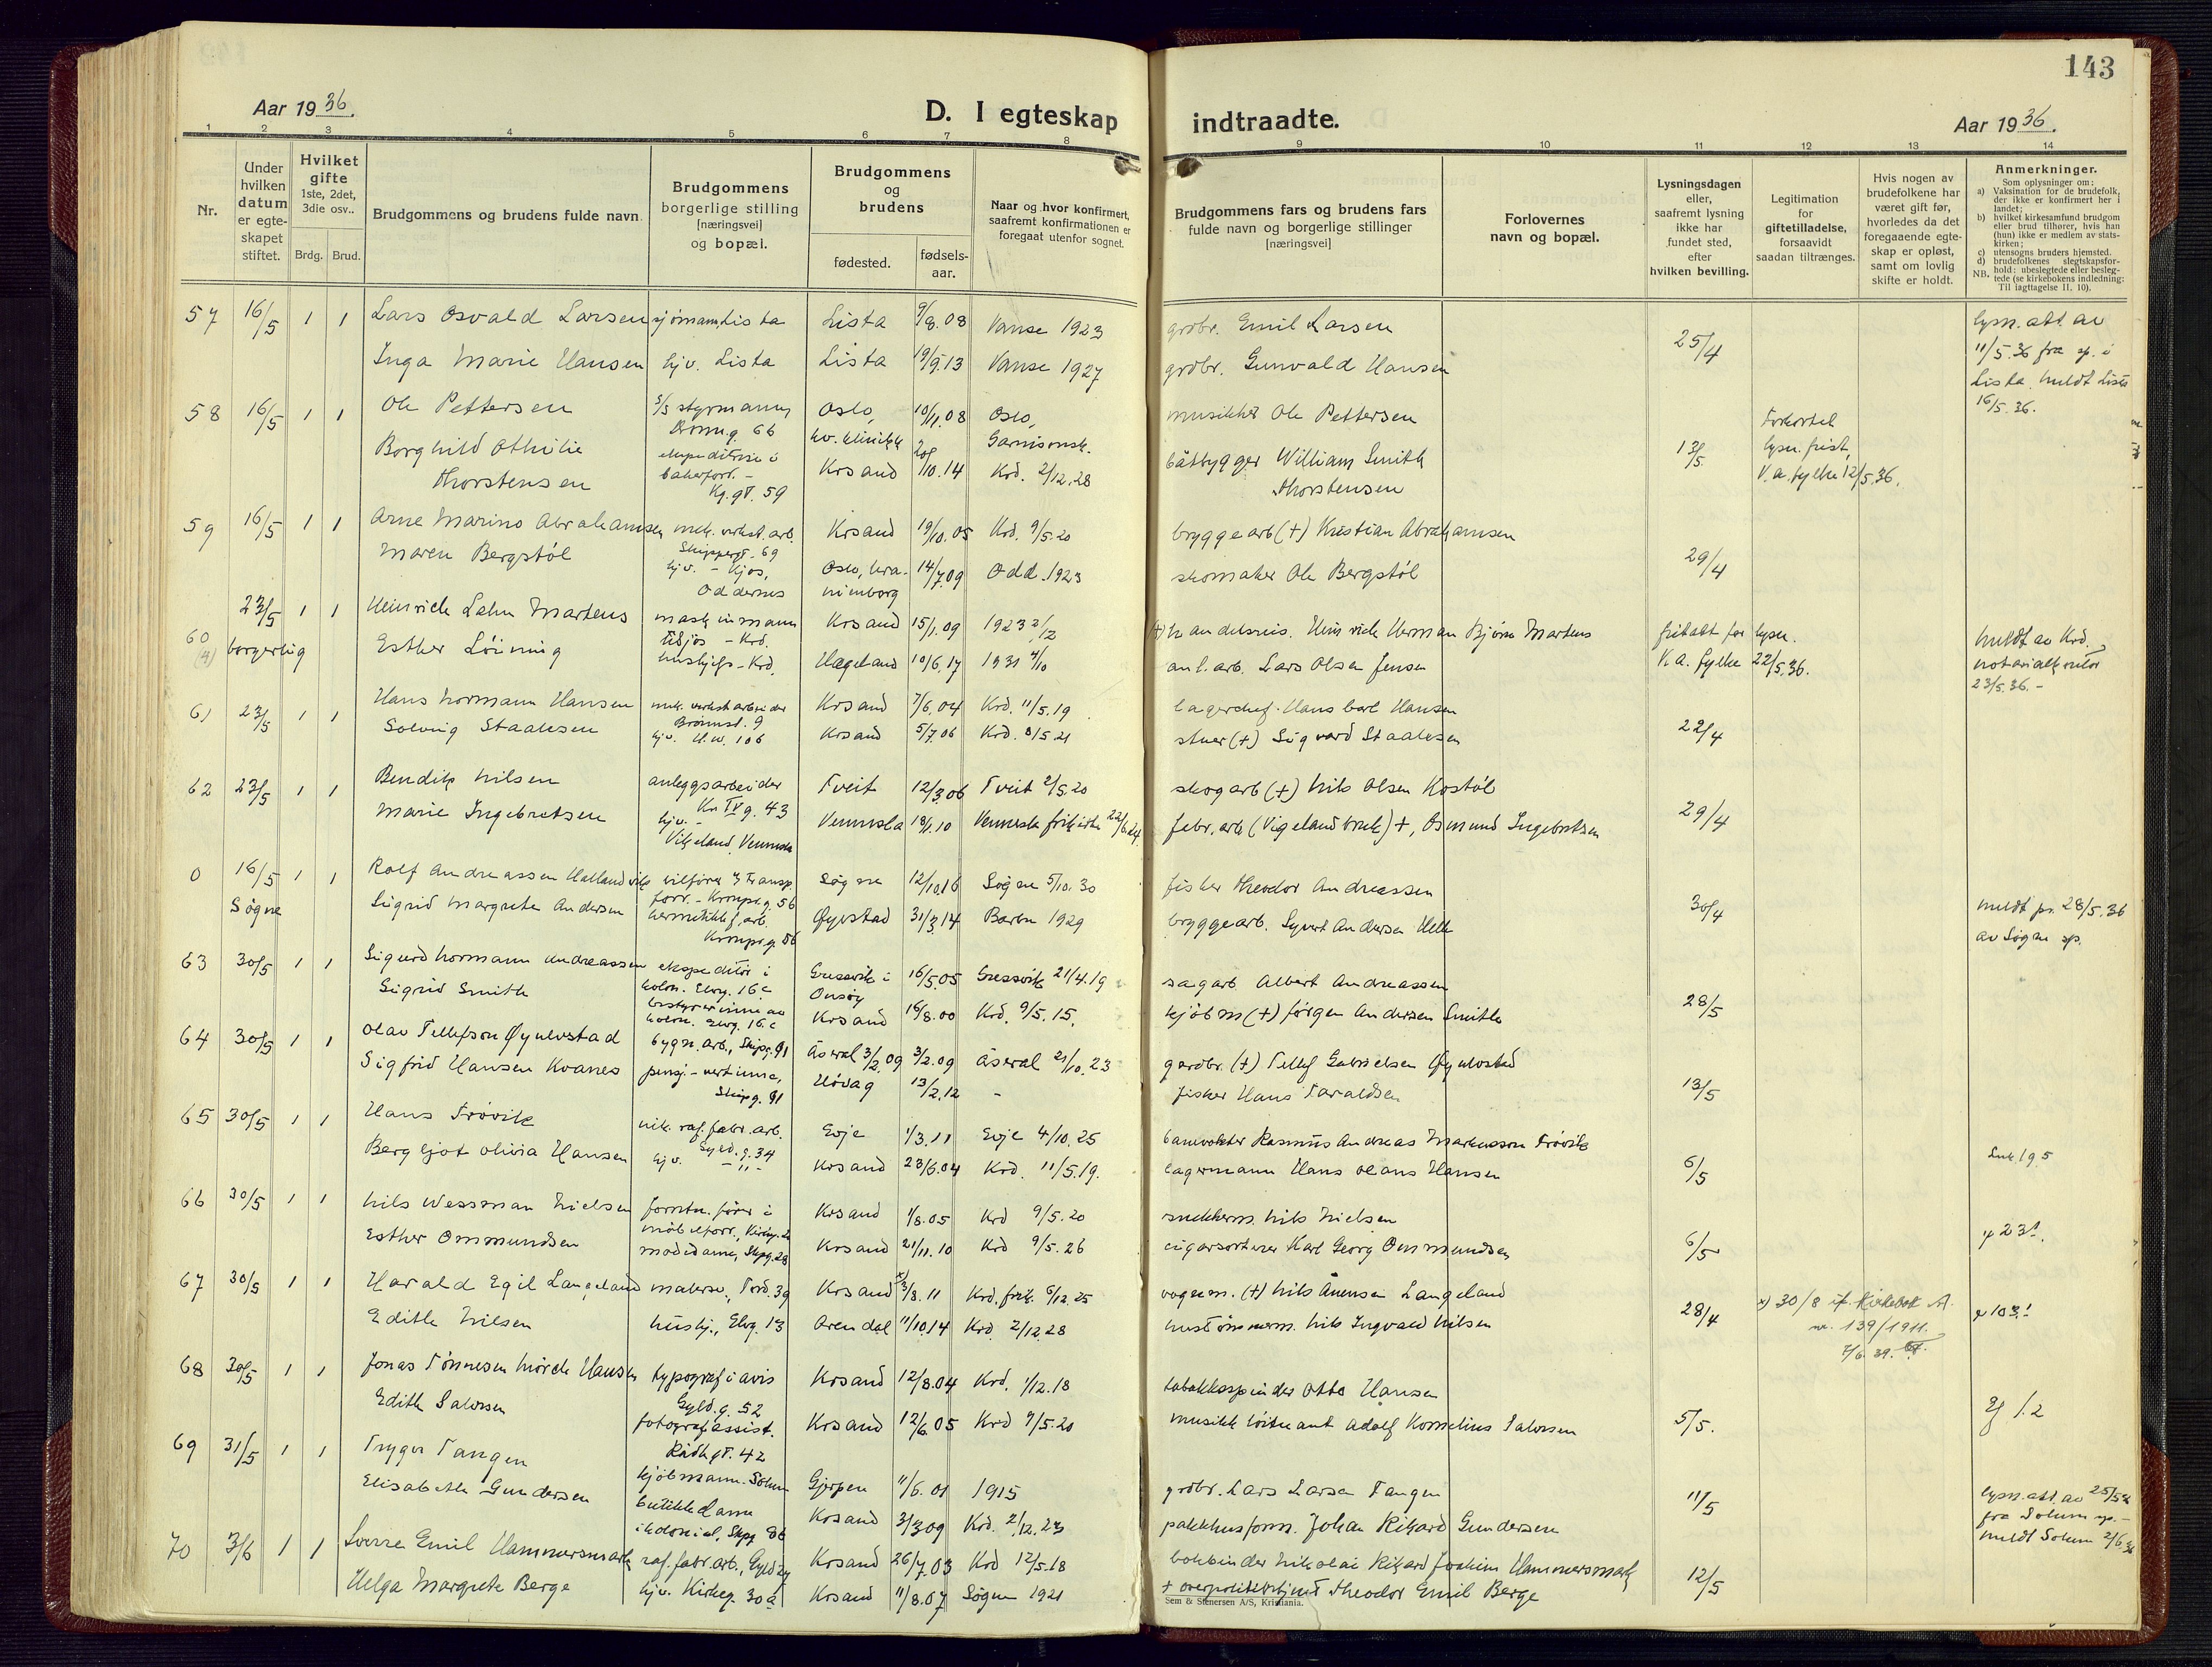 143
Aar 1936.
D. I egteskap indtraadte.
Aar 1936.
1 2 3 4 5 6 7 8 9 10 11 12 13 14
Nr.
Under hvilken datum er egte-skapet stiftet.
Hvilket gifte 1ste, 2det, 3die osv..
Brdg. Brud.
Brudgommens og brudens fulde navn.
Brudgommens borgerlige stilling [næringsvei] og bopæl.
Brudgommens og brudens
fødested. fødsels-aar.
Naar og hvor konfirmert, saafremt konfirmationen er foregaat utenfor sognet.
Brudgommens fars og brudens fars fulde navn og borgerlige stillinger [næringsvei]
Forlovernes navn og bopæl.
Lysningsdagen eller, saafremt lysning ikke har fundet sted, efter hvilken bevilling.
Legitimation for giftetilladelse, forsaavidt saadan tiltrænges.
Hvis nogen av brudefolkene har været gift før, hvorledes da det foregaaende egte-skap er opløst, samt om lovlig skifte er holdt.
Anmerkninger.
Som oplysninger om:
a) Vaksination for de brudefolk, der ikke er konfirmert her i landet;
b) hvilket kirkesamfund brudgom eller brud tilhører, hvis han (hun) ikke er medlem av stats-kirken;
c) utensogns bruders hjemsted.
d) brudefolkenes slegtskapsfor-hold: ubeslegtede eller besleg-tede (se kirkebokens indledning:
NB. Til iagttagelse II. 10).
57 16/5 1 1 Lars Osvald Larsen sjömann, Lista Lista 9/8.08 Vanse 1923 grdbr. Emil Larsen 25/4 lysn. att. av
Inga Marie Hansen hjv. Lista Lista 19/9.13 Vanse 1927 grdbr. Gunvald Hansen 11/5.36 fra sp. i
Lista. meldt Lista
16/5.36.
58 16/5 1 1 Ole Pettersen S/S styrmann, Oslo, 10/11.08 Oslo, musikker Ole Pettersen Forkortet
Dronn.g. 66 kv. klinikk Garnisonsk.
Borghild Othilie Thorstensen ekspeditrise i bakerforr. - Kg.gt. 59 Krsand 20/10.14 Krd. 2/12.28 båtbygger William Smith Thorstensen 13/5. lysn. frist,
V.a. fylke 12/5.36.
59 16/5 1 1 Arne Marino Abrahamsen mek. verkst. arb. Skippergt. 69 Krsand 19/10.05 Krd. 9/5.20 bryggearb (+) Kristian Abrahamsen
Maren Bergstöl hjv. - Kjos, Oddernes Oslo, Ura-nienborg 14/7.09 Odd. 1923 skomaker Ole Bergstöl 29/4
60 23/5 1 1 Heinrich Lahn Martens maskinmann Krsand 15/1.09 1923 2/12 handelsreis. Heinrich Herman Bjørn Martens fritatt for lysn. meldt av Krd.
(4) borgerlig Esther Lönning hushj. - Krd. Hægeland 10/6.17 1931 4/10 anl. arb. Lars Olsen Jensen V.a. fylke 22/5.36. notarialkontor
23/5.36. -
61 23/5 1 1 Hans Normann Hansen mek. verkstarbeider Krsand 7/6.04 Krd. 11/5.19 lagerchef Hans Carl Hansen
Solveig Staalesen hjv. H.W. 106 Krsand 5/7.06 Krd. 8/5.21 stuer (+) Sigvard Staalesen 22/4
62 23/5 1 1 Bendik Nilsen anleggsarbeider Kr. IV g. 43 Tveit 12/3.06 Tveit 2/5.20 skogarb (+) Nils Olsen Kostöl
Marie Ingebretsen hjv. - Vikeland, Vennesla Vennesla 18/1.10 Vennesla frikirke 22/6.24. fabr. arb (Vigeland bruk) +, Osmund Ingebretsen 29/4
0 16/5 1 1 Rolf Andreassen Hallandvik bilförer i transp. forr. - Kronpr.g. 56 Søgne 12/10.16 Søgne 5/10.30 fisker Theodor Andreassen
Søgne Sigrid Margrete Andersen hermetikkf. arb. Kronpr.g. 56 Øyestad 31/3.14 Barbu 1929 bryggearb. Syvert Andersen Helle 30/4 meldt pr. 28/5.36
av Søgne sp.
63 30/5 1 1 Sigurd Normann Andreassen ekspeditör i kolon. Elvg. 16c Gressvik i Onsøy 16/5.05 Gressvik 21/4.19 sagarb. Albert Andreassen
Sigrid Smith bestyrerinne av kolon. Elvg. 16c Krsand 16/8.00 Krd. 9/5.15. kjöbm (+) Jörgen Andersen Smith 28/5
64 30/5 1 1 Olav Tellefson Øynlvstad bygn. arb., Skipg. 91 Åseral 3/2.09 3/2.09 Åseral 21/10.23 gardbr. (+) Tellef Gabrielsen Øynlvstad
Sigfrid Hansen Kvanes pensj - vertinne, Skipg. 91 Høvåg 13/2.12 - fisker Hans Taraldsen 13/5
65 30/5 1 1 Hans Trövik nik. raf. fabr. arb. Gyld. g. 34 Evje 1/3.11 Evje 4/10.25 banevokter Rasmus Andreas Markusson Trövik
Bergljot Olivia Hansen hjv. - " - Krsand 23/6.04 Krd. 11/5.19. lagermann Hans Olaus Hansen 6/5
66 30/5 1 1 Nils Wessman Nielsen forretn. förer i möbelforr., Kirkg. Krsand 1/8.05 Krd 9/5.20 snekkerm. Nils Nielsen
Esther Ommundsen motedame, Skpg. 28 Krsand 21/11.10 Krd 9/5.26 cigarsorterer Karl Georg Ommundsen 6/5
67 30/5 1 1 Harald Egil Langeland malersv., Tord. 39 Krsand x) 3/8.11 Krd. frik. 6/12.25 vognm. (+) Nils Ånensen Langeland x) 30/8 if. Kirkebok A.
Edith Nilsen hushj., Elvg. 13 Arendal 11/10.14 Krd. 2/12.28 hustömmerm. Nils Ingvald Nilsen 28/4 nr. 139/1911.
7/6.39.
68 30/5 1 1 Jonas Tönnesen Mörch Hansen typograf i avis Gyld. g. 52 Krsand 12/8.04 Krd. 1/12.18 tobakkspinder Otto Hansen
Edith Salvesen fotografassist. Rådh.gt. 42 Krsand 12/6.05 Krd 9/5.20 musikk löitnant Adolf Kornelius Salvesen 5/5.
69 31/5 1 1 Trygve Tangen kjöbmann - Solum Gjerpen 11/6.01 1915 grdbr. Lars Larsen Tangen 11/5 lysn. att. av 25/5.36
Elisabeth Gundersen butikkdame i kolonial, Skpg 86 Krsand 3/3.09 Krd. 2/12.23 pakkhusform. Johan Rikard Gundersen fra Solum sp. -
meldt Solum 2/6.36
70 3/6 1 1 Sverre Emil Hammersmark raf. fabr. arb., Gyld. Krsand 26/7.03 Krd 12/5.18 bokbinder Nikolai Rikard Joakim Hammersmark
Helga Margrete Berge hjv. Kirkeg. 30a Krsand 11/8.07 Søgne 1921 + overpolitibetjent Theodor Emil Berge 12/5
Sem & Stenersen A/S, Kristiania.